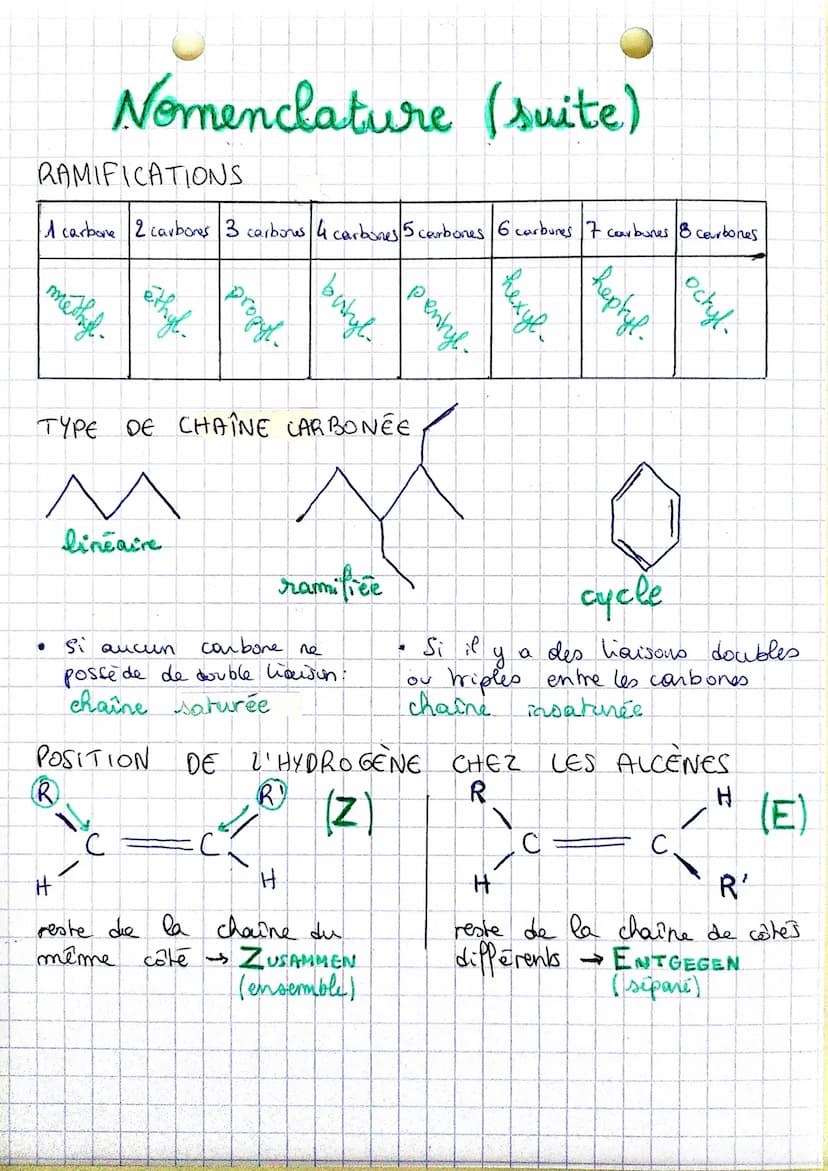 Nomenclature (suite)
RAMIFICATIONS
1 carbone 2 carbones 3 carbones 4 carbones 5 carbones 6 carbones 7 carbones 8 carbones
méthyl. éthyl. propyl. butyl. pentyl. hexyl. heptyl. octyl.
TYPE DE CHAÎNE CARBONÉE
linéaire
ramifiée
cycle
• Si aucun carbone ne
possède de double liaison:
chaîne saturée
• Si il y a des liaisons doubles
ou triples entre les carbones
chaîne insaturée
POSITION DE L'HYDROGÈNE CHEZ LES ALCÈNES
R R' (Z)
C C
H H
R H (E)
C C
H R'
reste de la chaîne du
même côté → ZUSAMMEN
(ensemble)
reste de la chaîne de côtés
différents → ENTGEGEN
(séparé)